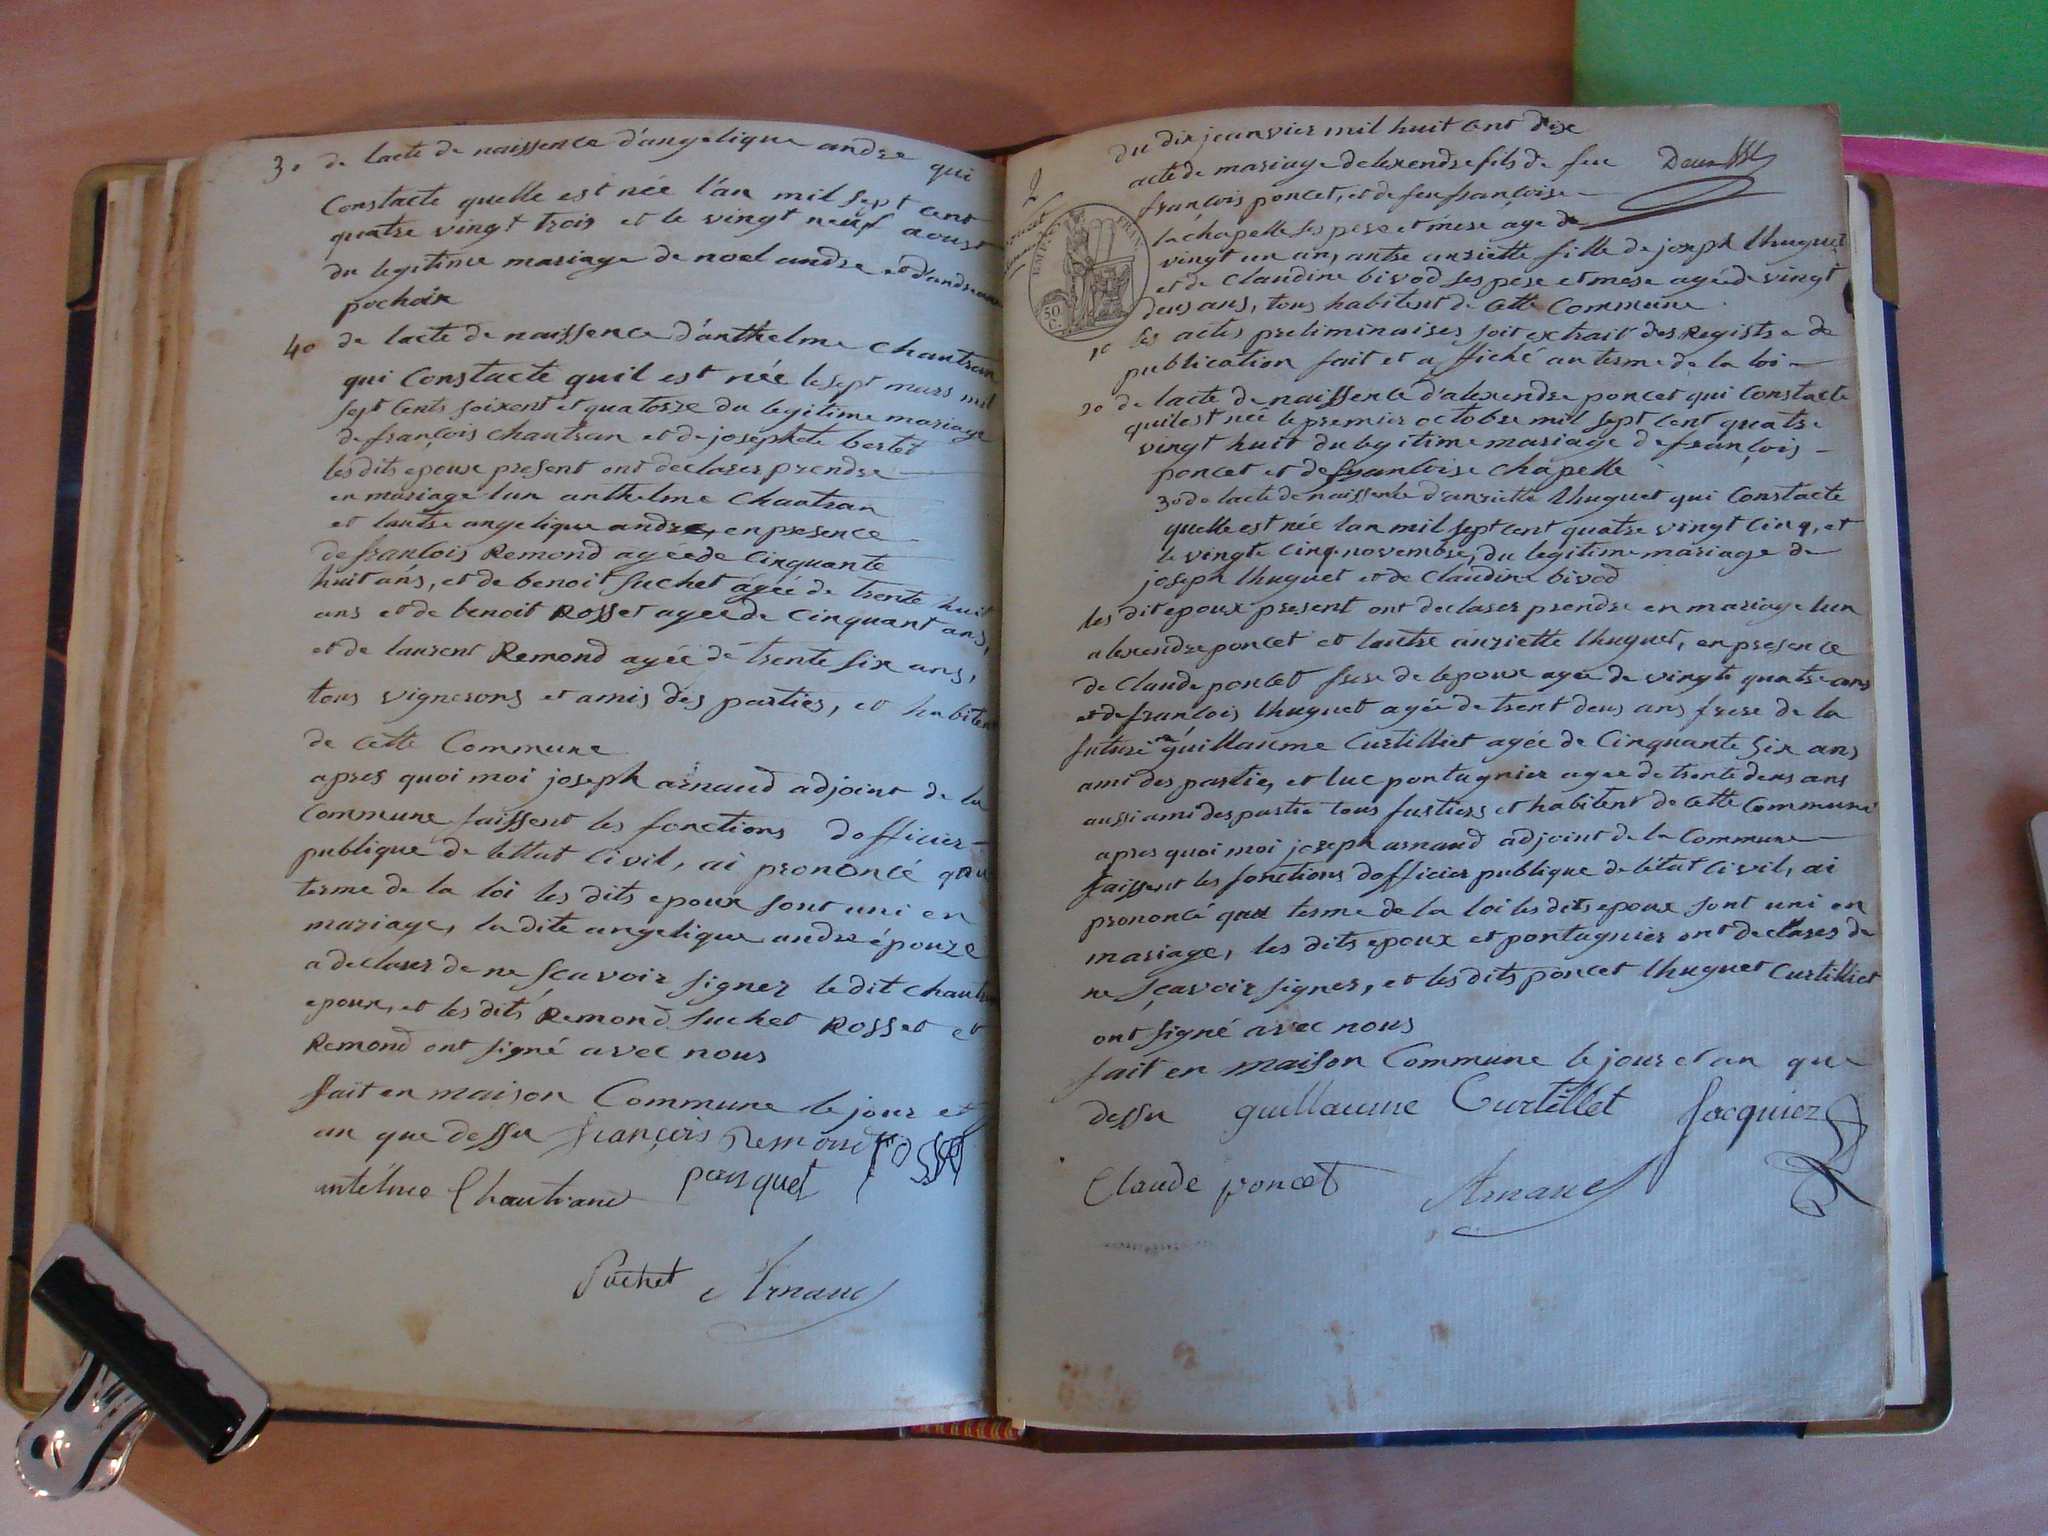 3o de lacte de naissence d'angelique andre qui
Constacte quelle est née l'an mil sept cent
quatre vingt trois et le vingt neuf aoust
du legitime mariage de noel andre et
pochoix
4o de lacte de naissence d'anthelme Chautran
qui Constacte quil est née le sept mars mil
sept Cents soixent et quatorze du legitime mariage
de françois Chautran et de josephete bertet
les dits epoux present ont declarer prendre
en mariage lun anthelme Chautran
et lautre angelique andre, en presence
de francois Remond agée de Cinquante
huit ans, et de benoit suchet agée de trente huit
ans et de benoit Rosset agée de Cinquant ans,
et de laurent Remond agée de trente six ans,
tous vignerons et amis des parties, et habitent
de Cette Commune
apres quoi moi joseph arnaud adjoint de la
Commune faissent les fonctions dofficier
publique de lettat Civil, ai prononcé quau
terme de la loi les dits epoux sont uni en
mariage, la dite angelique andre épouze
a declarer de ne sçavoir signer le dit Chautran
epoux, et les dits Remond Suchet Rosset et
Remond ont signé avec nous
fait en maison Commune le jour et
an que dessu françois Remond rosset
antelme Chautrand pasquet
Suchet Arnaud
du dix jeanvier mil huit cent dixe
acte de mariage dalexendre fils de feu
françois poncet, et de feu françoise
lachapelle ses pere et mere age de
vingt un an, autre anriette fille de joseph thuguet
et de Claudine bivod ses pere et mere agée de vingt
deus ans, tous habitent de Cette Commune
2
EMP. FRAN.
50 C.
1o les actes preliminaires soit extrait des Registre de
publication fait et affiché au terme de la loi
2o de lacte de naissence d'alexendre poncet qui Constacte
quil est née le premier octobre mil sept Cent quatre
vingt huit du legitime mariage de françois
poncet et de francoise Chapelle
3o de lacte de naissente d'anriette thuguet qui Constacte
quelle est née lan mil sept cent quatre vingt Cinq, et
le vingte cinq novembre, du legitime mariage de
joseph thuguet et de Claudine bivod
les dit epoux present ont declarer prendre en mariage lun
alexendre poncet et lautre anriette thuguet, en presence
de Claude poncet frere de lepoux agée de vingte quatre ans
et de francois thuguet agée de trent deus ans frere de la
future guillaume Curtilliet agée de Cinquante six ans
ami des partie, et luc portugnier agee de trente deus ans
aussi ami des partie tous fustiers et habitent de Cette Commune
apres quoi moi joseph arnaud adjoint de la Commune
faissent les fonctions dofficier publique de letat Civil, ai
prononcé quau terme de la loi les dits epoux sont uni en
mariage, les dits epoux et portugnier ont declarer de
ne sçavoir signer, et les dits poncet thuguet Curtilliet
ont signé avec nous
fait en maison Commune le jour et an que
dessu guillaume Curtillet Jacquier
Claude poncet Arnaud